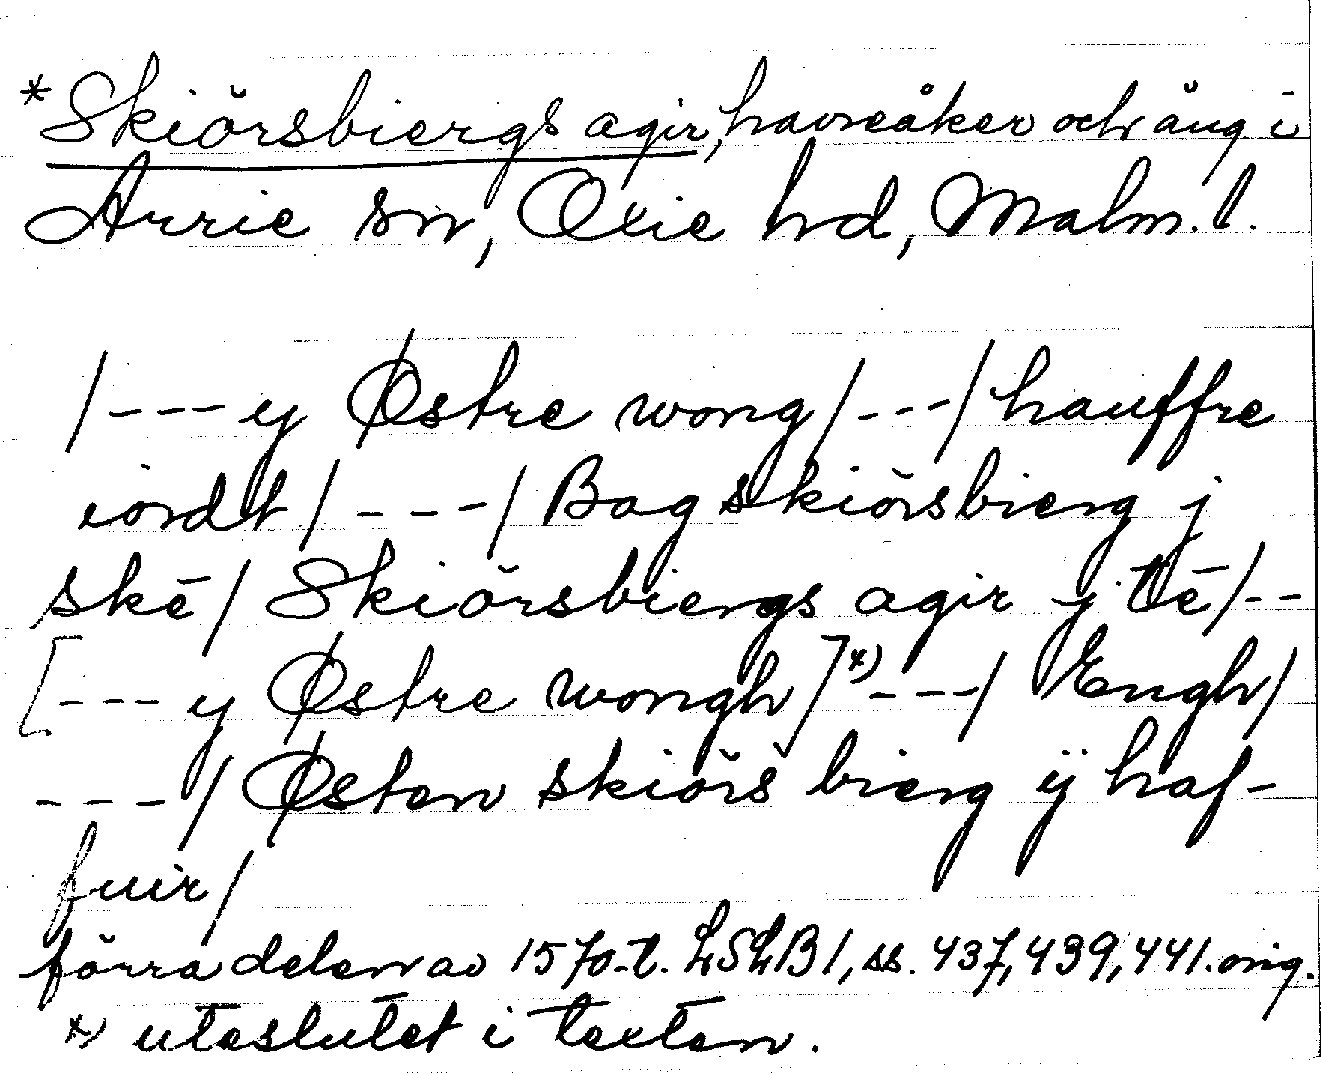 *Skiörsbiergs agir, havreåker och äng i
Arrie sn, Oxie hd, Malm. l.
/---y Østre wong/---/hauffre
iordt/---/Bag skiörsbierg j
skē/ Skiörsbiergs agir y tē/--
[---y Østre wongh]*)---/ Engh/
---/Østen skiörs bierg ÿ haf-
fuir/
förra delen av 1570-t. LSLB1, ss. 437, 439, 441. orig.
*) uteslutet i texten.